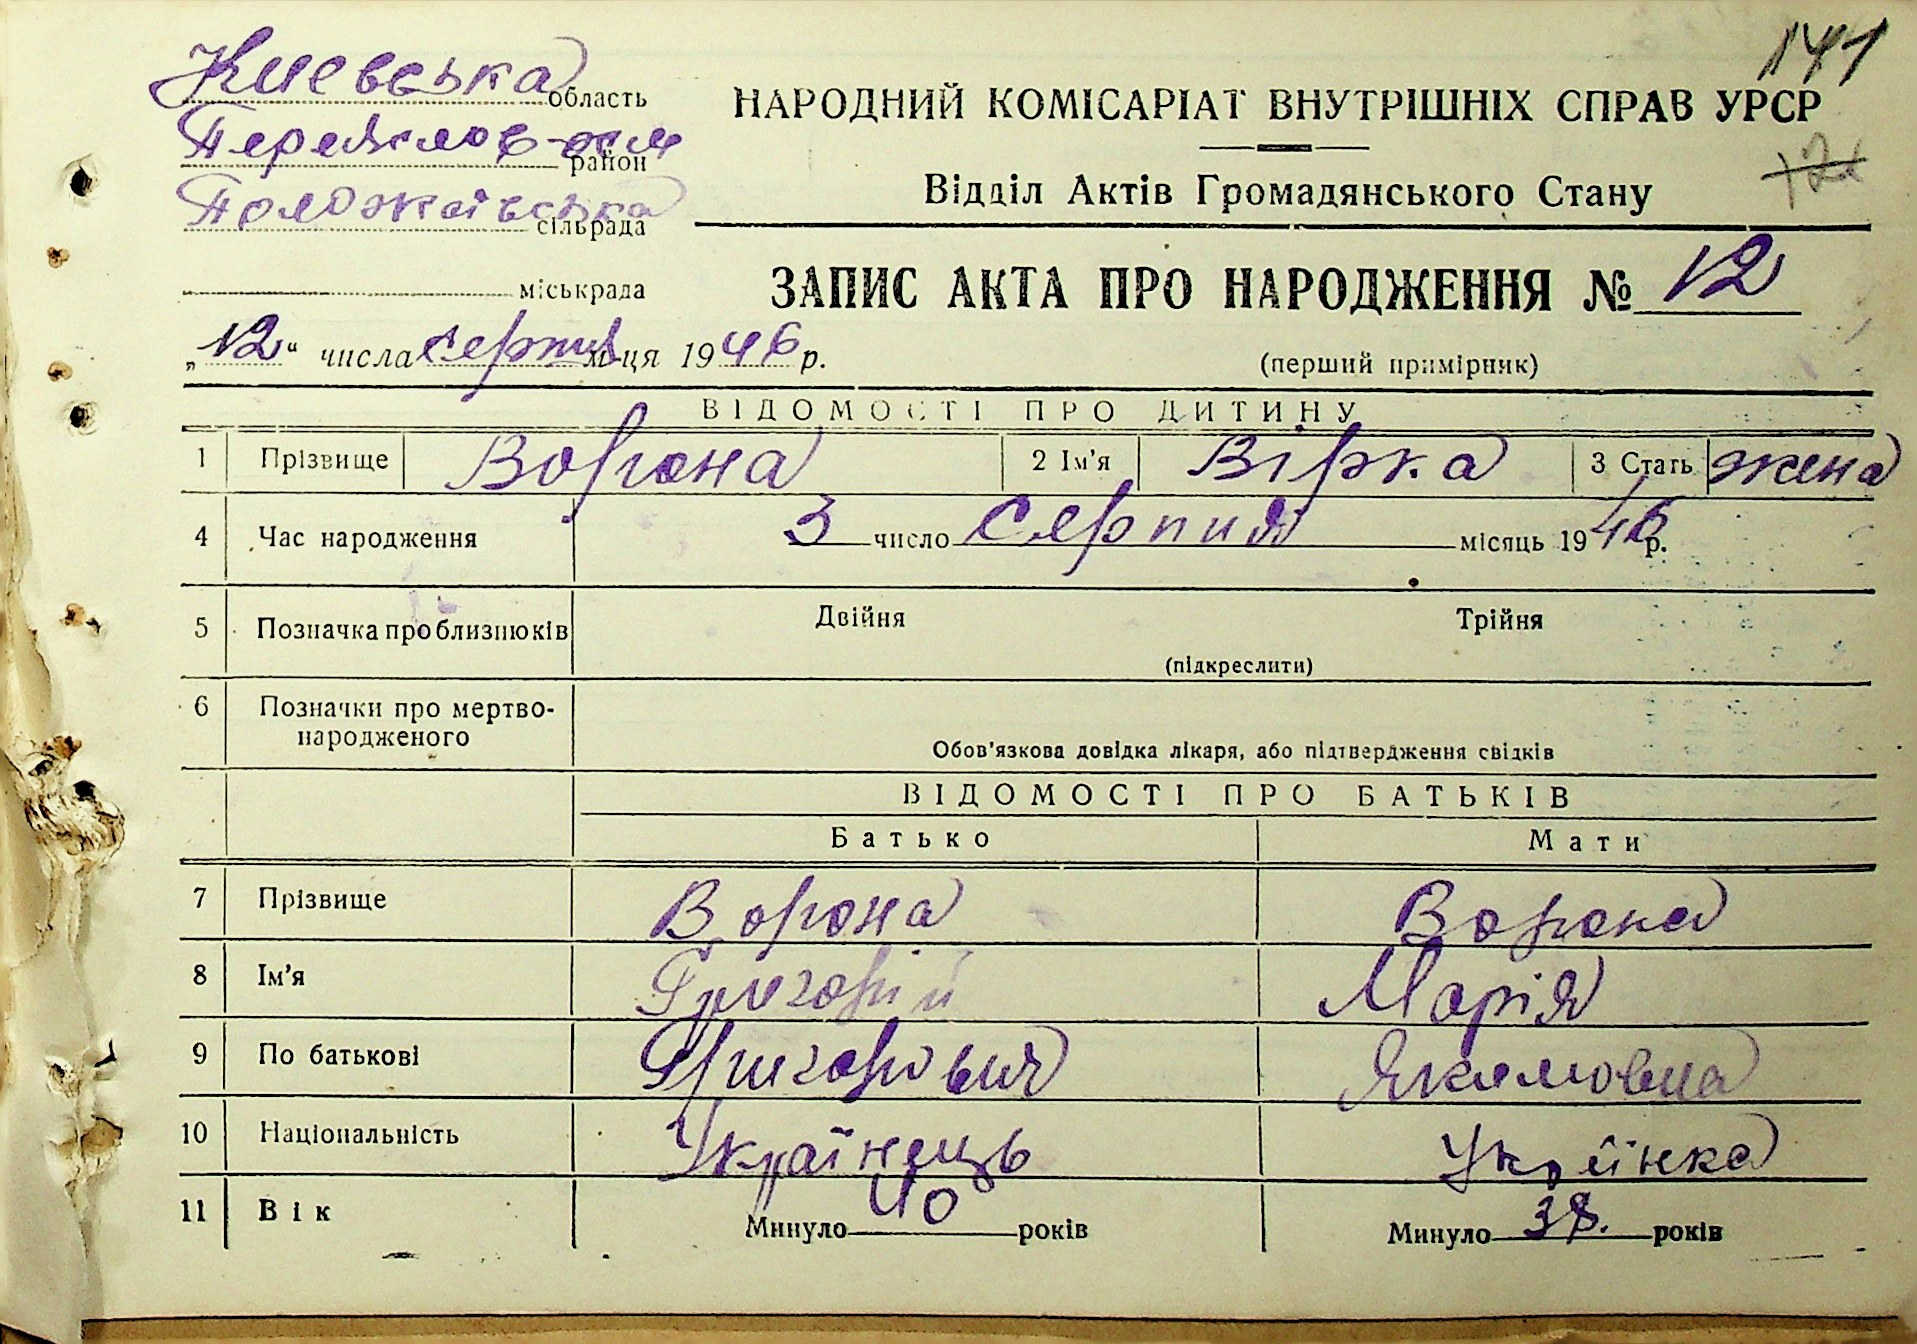 171
Киевська область
НАРОДНИЙ КОМІСАРІАТ ВНУТРІШНІХ СПРАВ УРСР
район
Відділ Актів Громадянського Стану
сільрада
міськрада
ЗАПИС АКТА ПРО НАРОДЖЕННЯ № 12
„12“ числа серпня м-ця 1946 р.
(перший примірник)
ВІДОМОСТІ ПРО ДИТИНУ
1 Прізвище Ворона 2 Ім'я Вірка 3 Стать жена
4 Час народження 3 число Серпня місяць 1946 р.
5 Позначка про близнюків Двійня Трійня
(підкреслити)
6 Позначки про мертво-
народженого
Обов'язкова довідка лікаря, або підтвердження свідків
ВІДОМОСТІ ПРО БАТЬКІВ
Батько Мати
7 Прізвище Ворона Ворона
8 Ім'я Григорій Марія
9 По батькові Григорович Якимовна
10 Національність Українець Українка
11 Вік Минуло 40 років Минуло 38. років